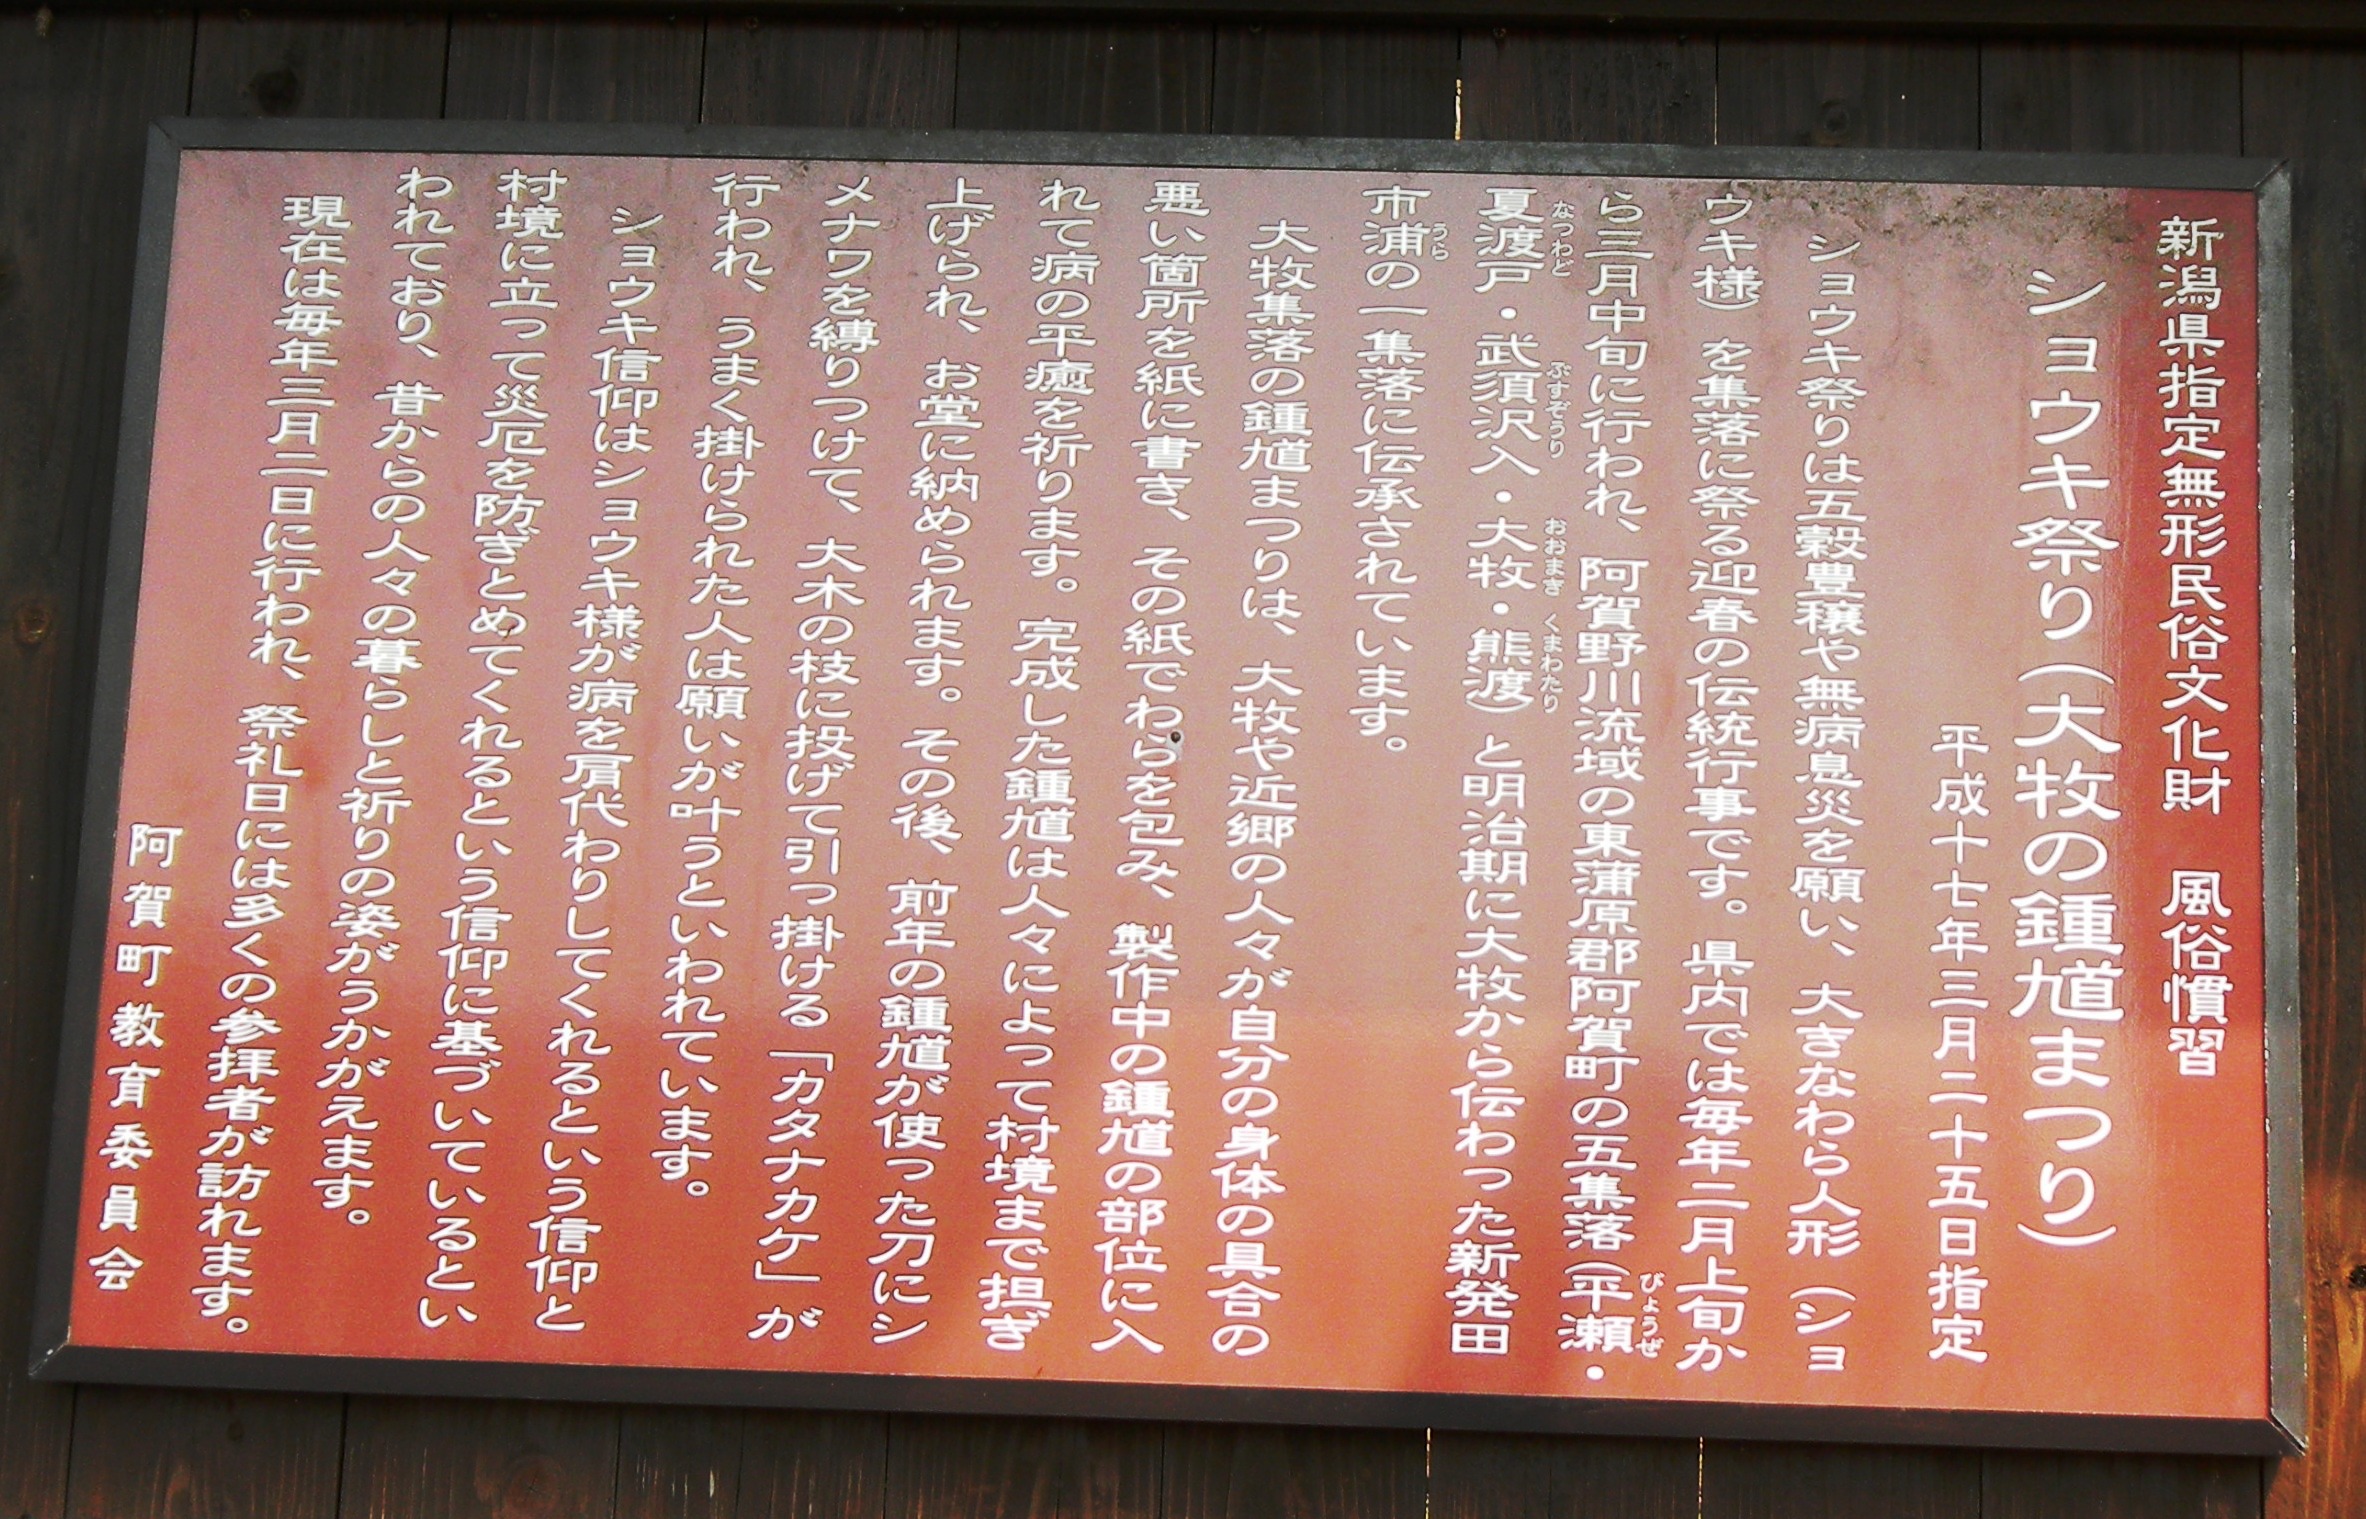 新潟県指定無形民俗文化財　風俗慣習
ショウキ祭り（大牧の鍾馗まつり）
平成十七年三月二十五日指定
ショウキ祭りは五穀豊穣や無病息災を願い、大きなわら人形（ショ
ウキ様）を集落に祭る迎春の伝統行事です。県内では毎年二月上旬か
ら三月中旬に行われ、阿賀野川流域の東蒲原郡阿賀町の五集落（平瀬・
びょうぜ
夏渡戸・武須沢入・大牧・熊渡）と明治期に大牧から伝わった新発田
なつわど　ぶすぞうり　おおまき　くまわたり
市浦の一集落に伝承されています。
うら
大牧集落の鍾馗まつりは、大牧や近郷の人々が自分の身体の具合の
悪い箇所を紙に書き、その紙でわらを包み、製作中の鍾馗の部位に入
れて病の平癒を祈ります。完成した鍾馗は人々によって村境まで担ぎ
上げられ、お堂に納められます。その後、前年の鍾馗が使った刀にシ
メナワを縛りつけて、大木の枝に投げて引っ掛ける「カタナカケ」が
行われ、うまく掛けられた人は願いが叶うといわれています。
ショウキ信仰はショウキ様が病を肩代わりしてくれるという信仰と
村境に立って災厄を防ぎとめてくれるという信仰に基づいているとい
われており、昔からの人々の暮らしと祈りの姿がうかがえます。
現在は毎年三月二日に行われ、祭礼日には多くの参拝者が訪れます。
阿賀町教育委員会